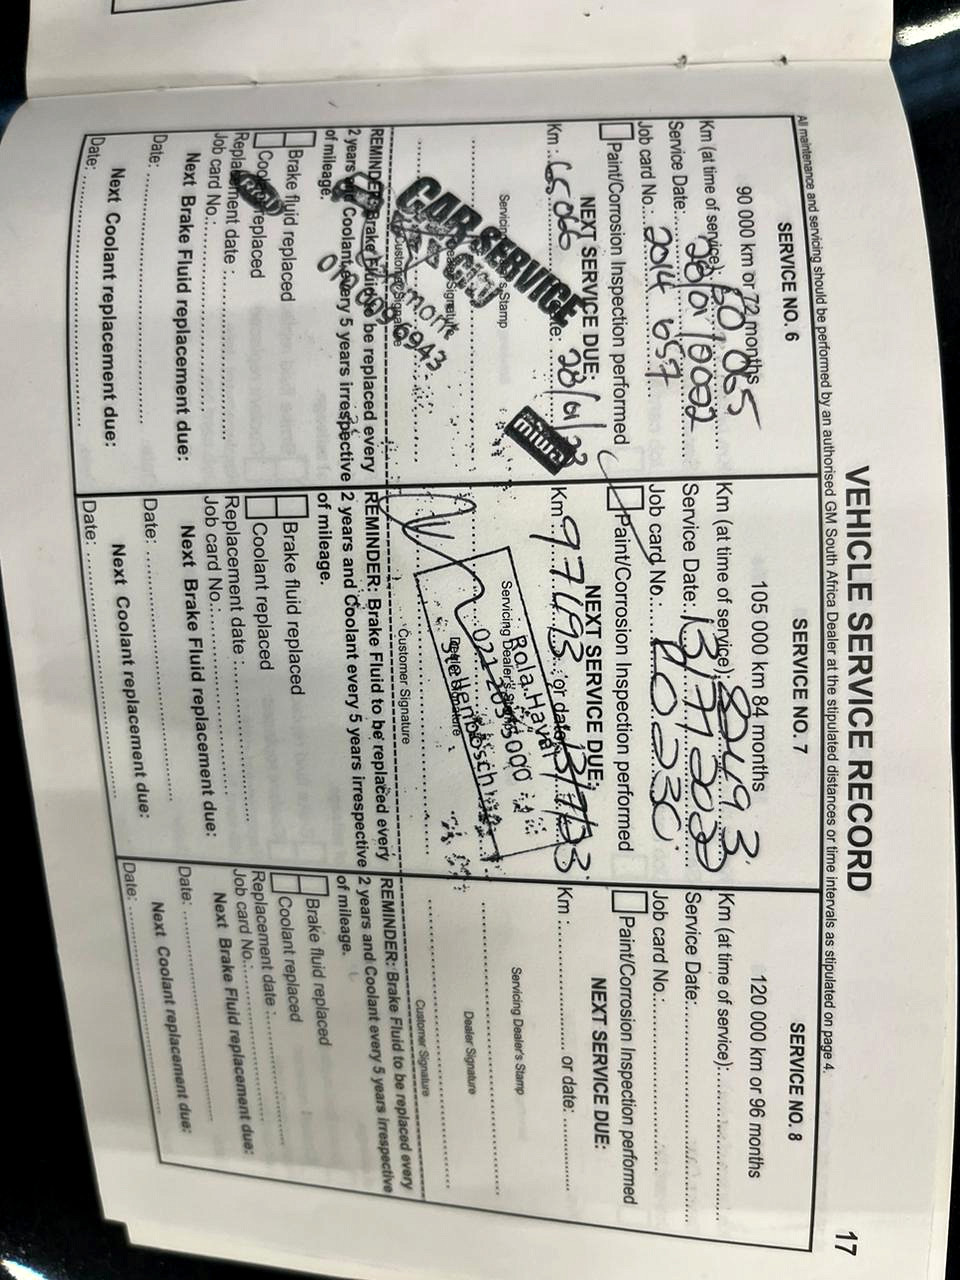 17
VEHICLE SERVICE RECORD
All maintenance and servicing should be performed by an authorised GM South Africa Dealer at the stipulated distances or time intervals as stipulated on page 4.
SERVICE NO. 6
90 000 km or 72 months
Km (at time of service):
Service Date:
Job card No.: 2014 657
Paint/Corrosion Inspection performed
NEXT SERVICE DUE:
Km: 65066 28/01/23
miwa
Servicing Stamp
CAR SERVICE
CITY
Customer Signature
010 009 6943
REMINDER: Brake Fluid to be replaced every
2 years and Coolant every 5 years irrespective
of mileage.
Brake fluid replaced
Coolant replaced
Replacement date :
Job card No.:
Next Brake Fluid replacement due:
Date:
Next Coolant replacement due:
Date:
SERVICE NO. 7
105 000 km 84 months
Km (at time of service): 82493
Service Date: 13/7/2022
Job card No.: 10230
Paint/Corrosion Inspection performed
NEXT SERVICE DUE:
Km: 97493 or date: 13/7/23
Servicing Dealer's Stamp
Stellenbosch
Customer Signature
REMINDER: Brake Fluid to be replaced every
2 years and Coolant every 5 years irrespective
of mileage.
Brake fluid replaced
Coolant replaced
Replacement date :
Job card No.:
Next Brake Fluid replacement due:
Date:
Next Coolant replacement due:
Date:
SERVICE NO. 8
120 000 km or 96 months
Km (at time of service):
Service Date:
Job card No.:
Paint/Corrosion Inspection performed
NEXT SERVICE DUE:
Km : or date:
Servicing Dealer's Stamp
Dealer Signature
Customer Signature
REMINDER: Brake Fluid to be replaced every
2 years and Coolant every 5 years irrespective
of mileage.
Brake fluid replaced
Coolant replaced
Replacement date :
Job card No.:
Next Brake Fluid replacement due:
Date:
Next Coolant replacement due:
Date: